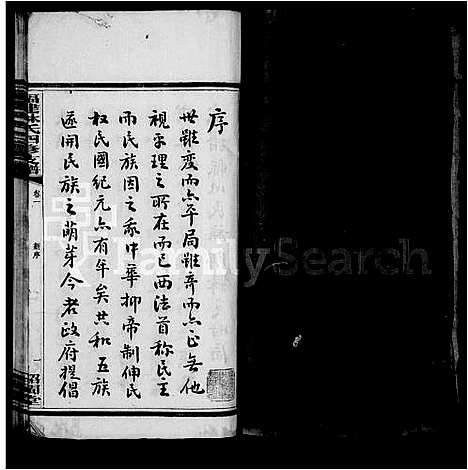 序
世雖変而亦平局雖奇而亦正無他
視乎理之所在而已西法首称民主
而民族因之我中華抑帝制伸民
权民國紀元亦有年矣共和五族
遂開民族之萌芽今者政府提倡
福建林氏四修支譜
卷一
新序
一
FamilySearch